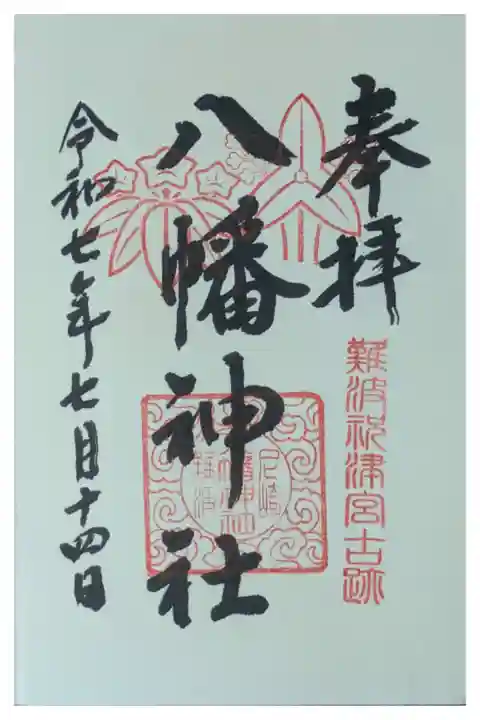 奉拝
難波祝津宮古跡
八幡神社
尼崎
八幡神社
難波
令和七年七月十四日